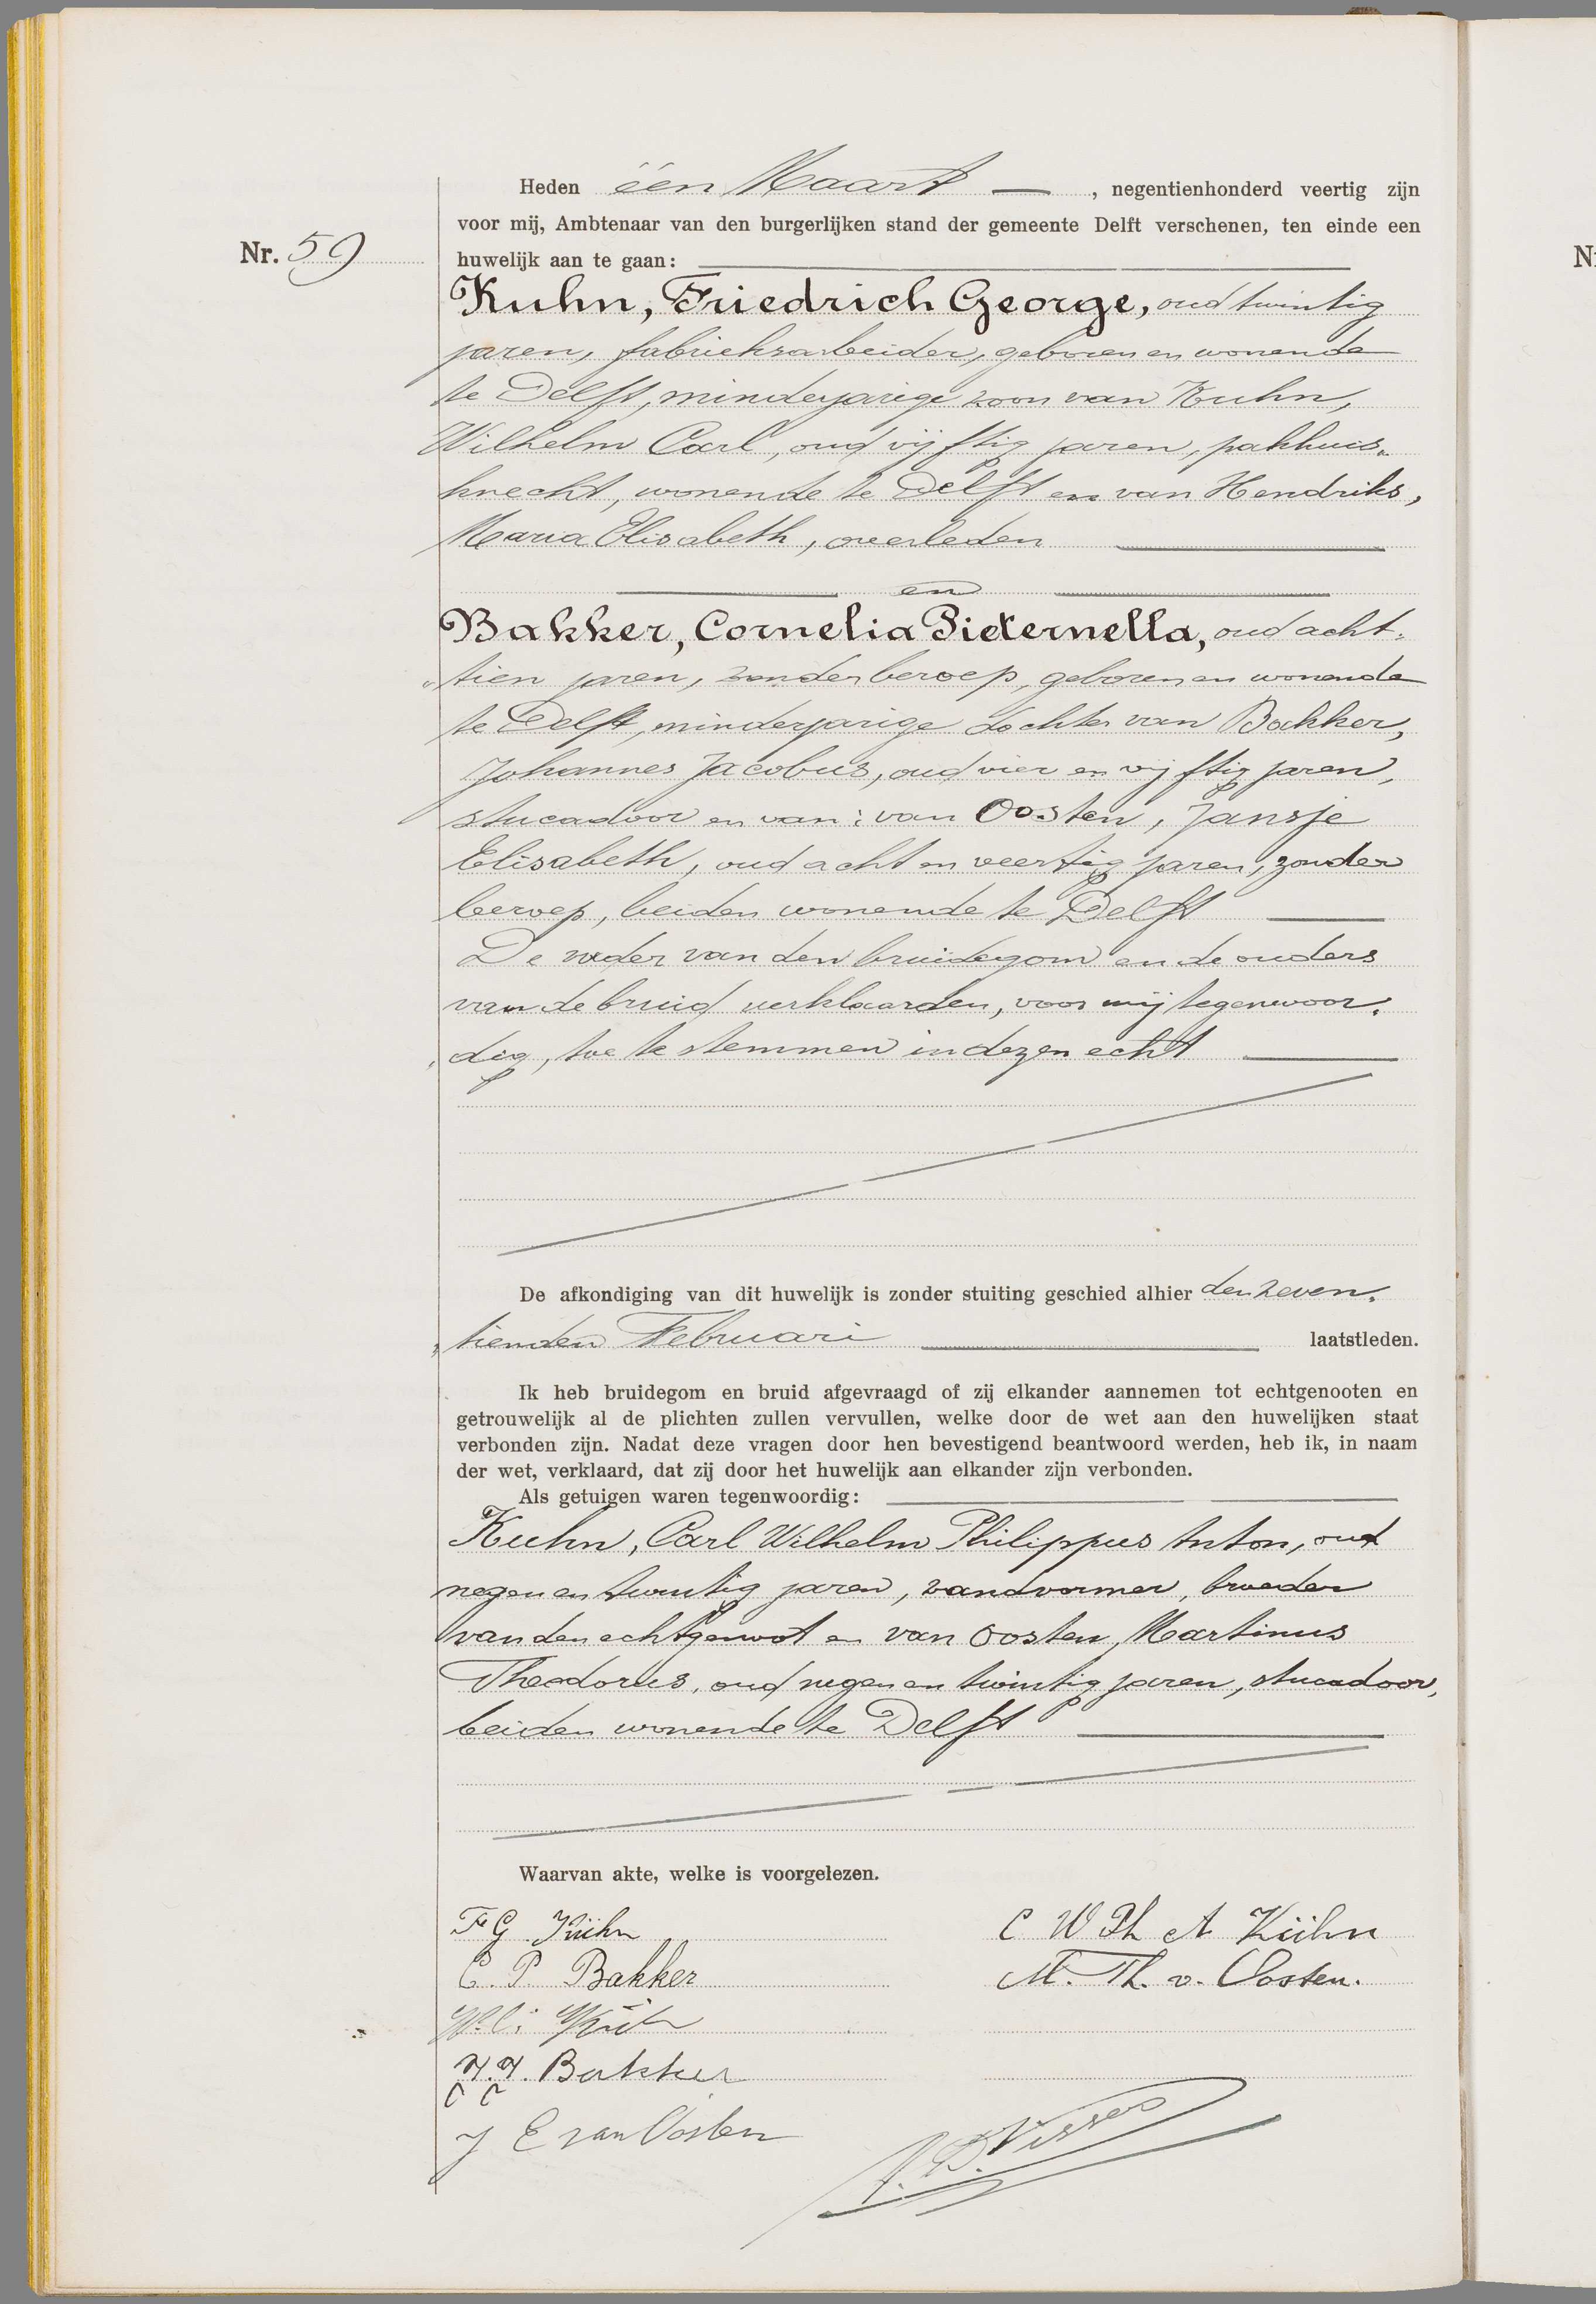 Heden één Maart —, negentienhonderd veertig zijn
voor mij, Ambtenaar van den burgerlijken stand der gemeente Delft verschenen, ten einde een
Nr. 59
huwelijk aan te gaan:
Kuhn, Friedrich George, oud twintig
jaren, fabrieksarbeider, geboren en wonende
te Delft, minderjarige zoon van Kuhn,
Wilhelm Carl, oud vijftig jaren, pakhuis„
knecht, wonende te Delft en van Hendriks,
Maria Elisabeth, overleden
en
Bakker, Cornelia Pieternella, oud acht„
„tien jaren, zonder beroep, geboren en wonende
te Delft, minderjarige dochter van Bakker,
Johannes Jacobus, oud vier en vijftig jaren,
stucadoor en van: van Oosten, Jansje
Elisabeth, oud acht en veertig jaren, zonder
beroep, beiden wonende te Delft
De vader van den bruidegom en de ouders
van de bruid verklaarden, voor mij tegenwoor„
„dig, toe te stemmen in dezen echt
De afkondiging van dit huwelijk is zonder stuiting geschied alhier den zeven„
„tienden Februari laatstleden.
Ik heb bruidegom en bruid afgevraagd of zij elkander aannemen tot echtgenooten en
getrouwelijk al de plichten zullen vervullen, welke door de wet aan den huwelijken staat
verbonden zijn. Nadat deze vragen door hen bevestigend beantwoord werden, heb ik, in naam
der wet, verklaard, dat zij door het huwelijk aan elkander zijn verbonden.
Als getuigen waren tegenwoordig:
Kuhn, Carl Wilhelm Philippus Anton, oud
negen en twintig jaren, zandvormer, broeder
van den echtgenoot en van Oosten, Martinus
Theodorus, oud negen en twintig jaren, stucadoor,
beiden wonende te Delft
Waarvan akte, welke is voorgelezen.
F G Kühn
C W Ph A Kühn
C. P. Bakker
M. Th. v. Oosten.
W. C. Küh
J. J. Bakker
J E van Oosten
Visser